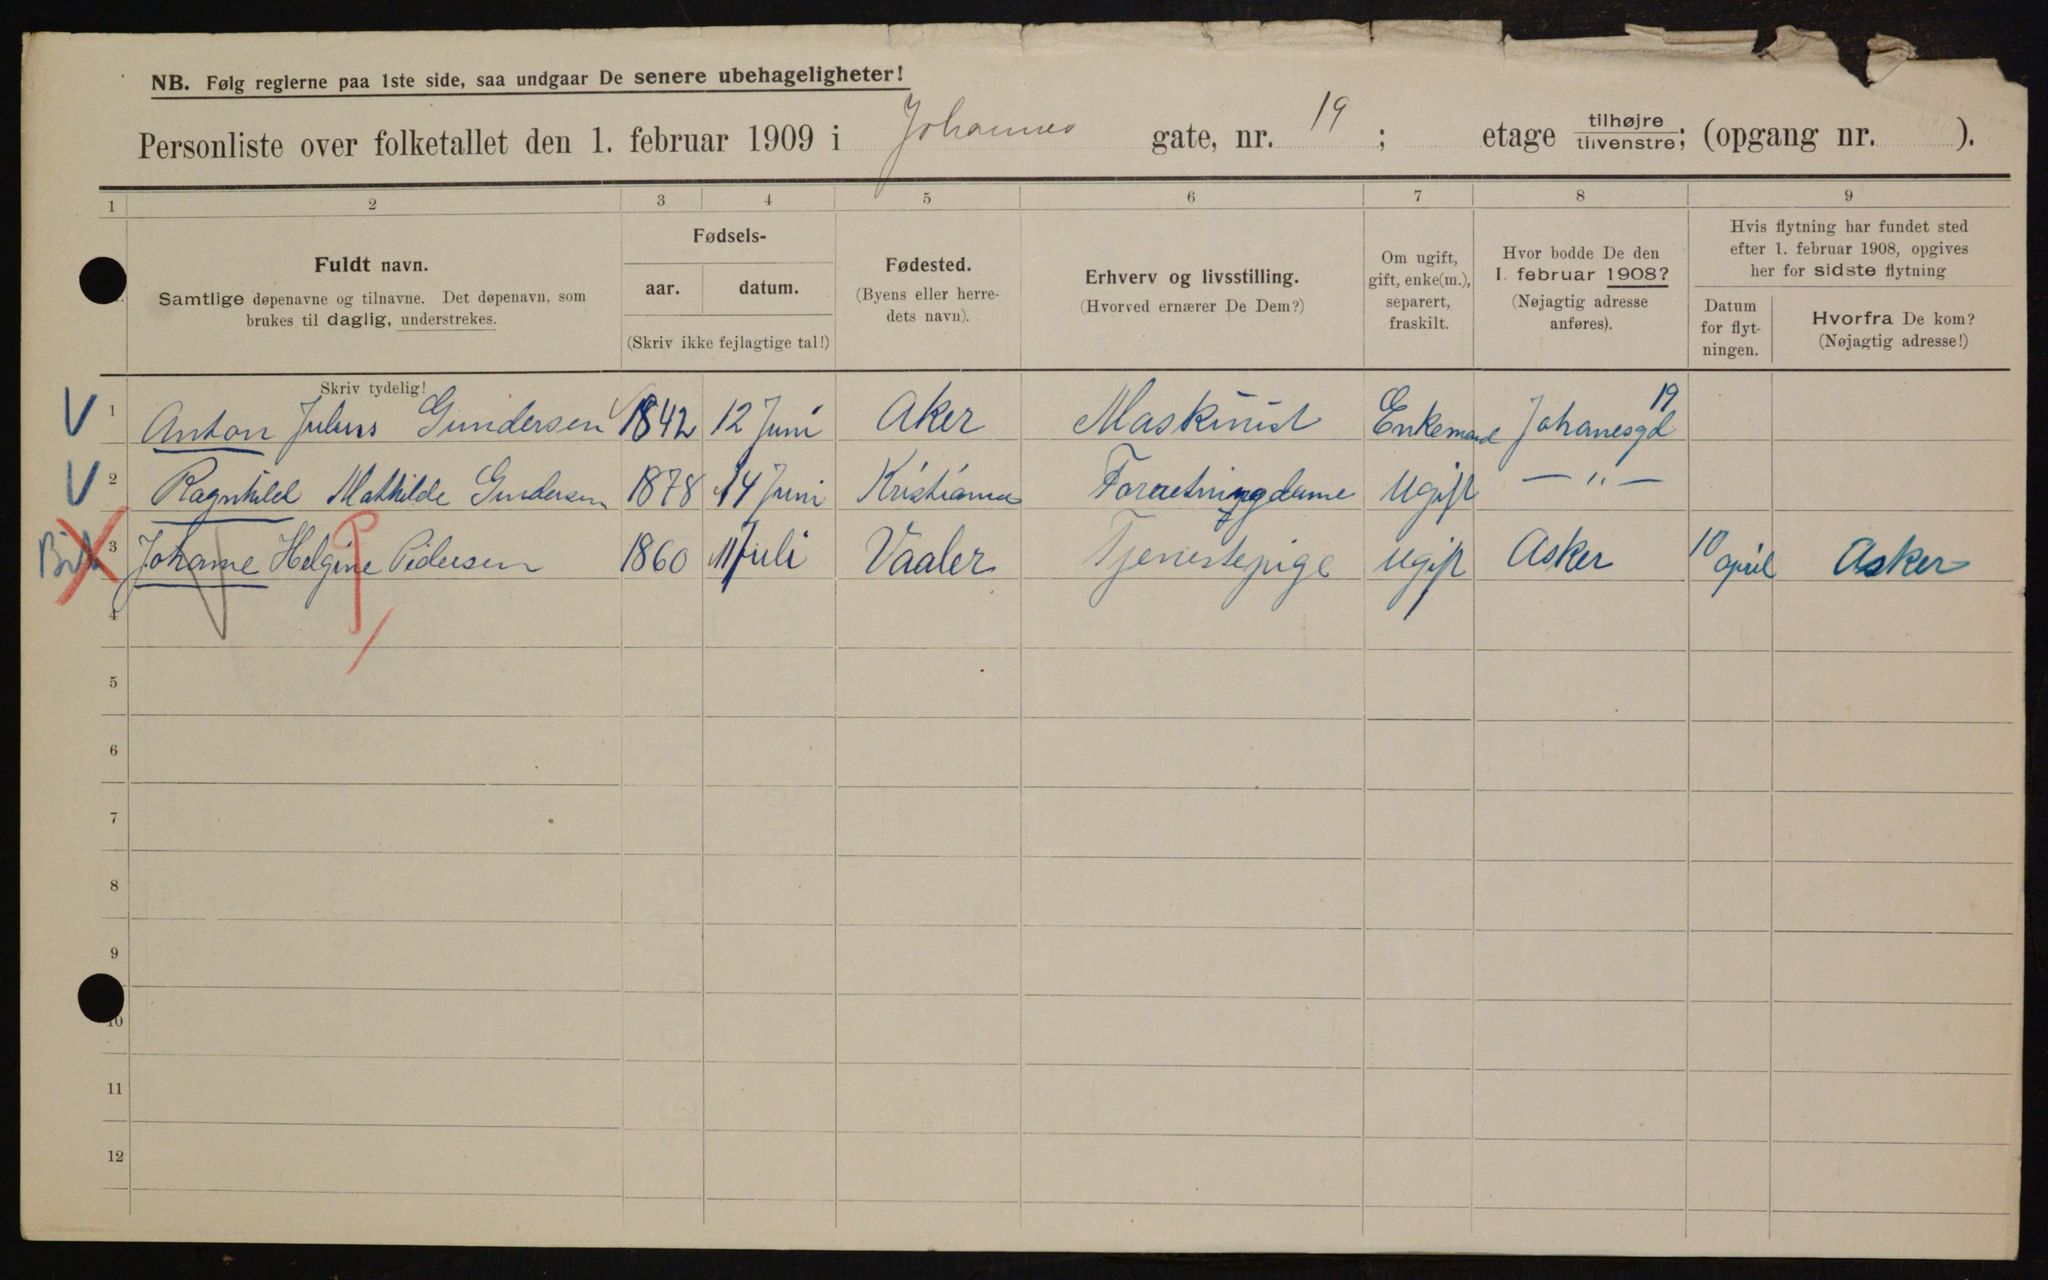 NB. Følg reglerne paa 1ste side, saa undgaar De senere ubehageligheter!
Personliste over folketallet den 1. februar 1909 i Johannes gate, nr. 19 ; etage tilhøjre tilvenstre; (opgang nr. ).
1 2 3 4 5 6 7 8 9
Fuldt navn.
Samtlige døpenavne og tilnavne. Det døpenavn, som
brukes til daglig, understrekes.
Fødsels-
aar. datum.
(Skriv ikke fejlagtige tal!)
Fødested.
(Byens eller herre-
dets navn).
Erhverv og livsstilling.
(Hvorved ernærer De Dem?)
Om ugift,
gift, enke(m.),
separert,
fraskilt.
Hvor bodde De den
1. februar 1908?
(Nøjagtig adresse
anføres).
Hvis flytning har fundet sted
efter 1. februar 1908, opgives
her for sidste flytning
Datum
for flyt-
ningen.
Hvorfra De kom?
(Nøjagtig adresse!)
Skriv tydelig!
V 1 Anton Julius Gundersen 1842 12 Juni Aker Maskinist Enkemand Johanesgd 19
V 2 Ragnhild Mathilde Gundersen 1878 14 Juni Kristiania Foraetningdame Ugift — „ —
3 Johanne Helgine Pedersen 1860 11 Juli Vaaler Tjenestepige Ugift Asker 10 april Asker
4
5
6
7
8
9
10
11
12